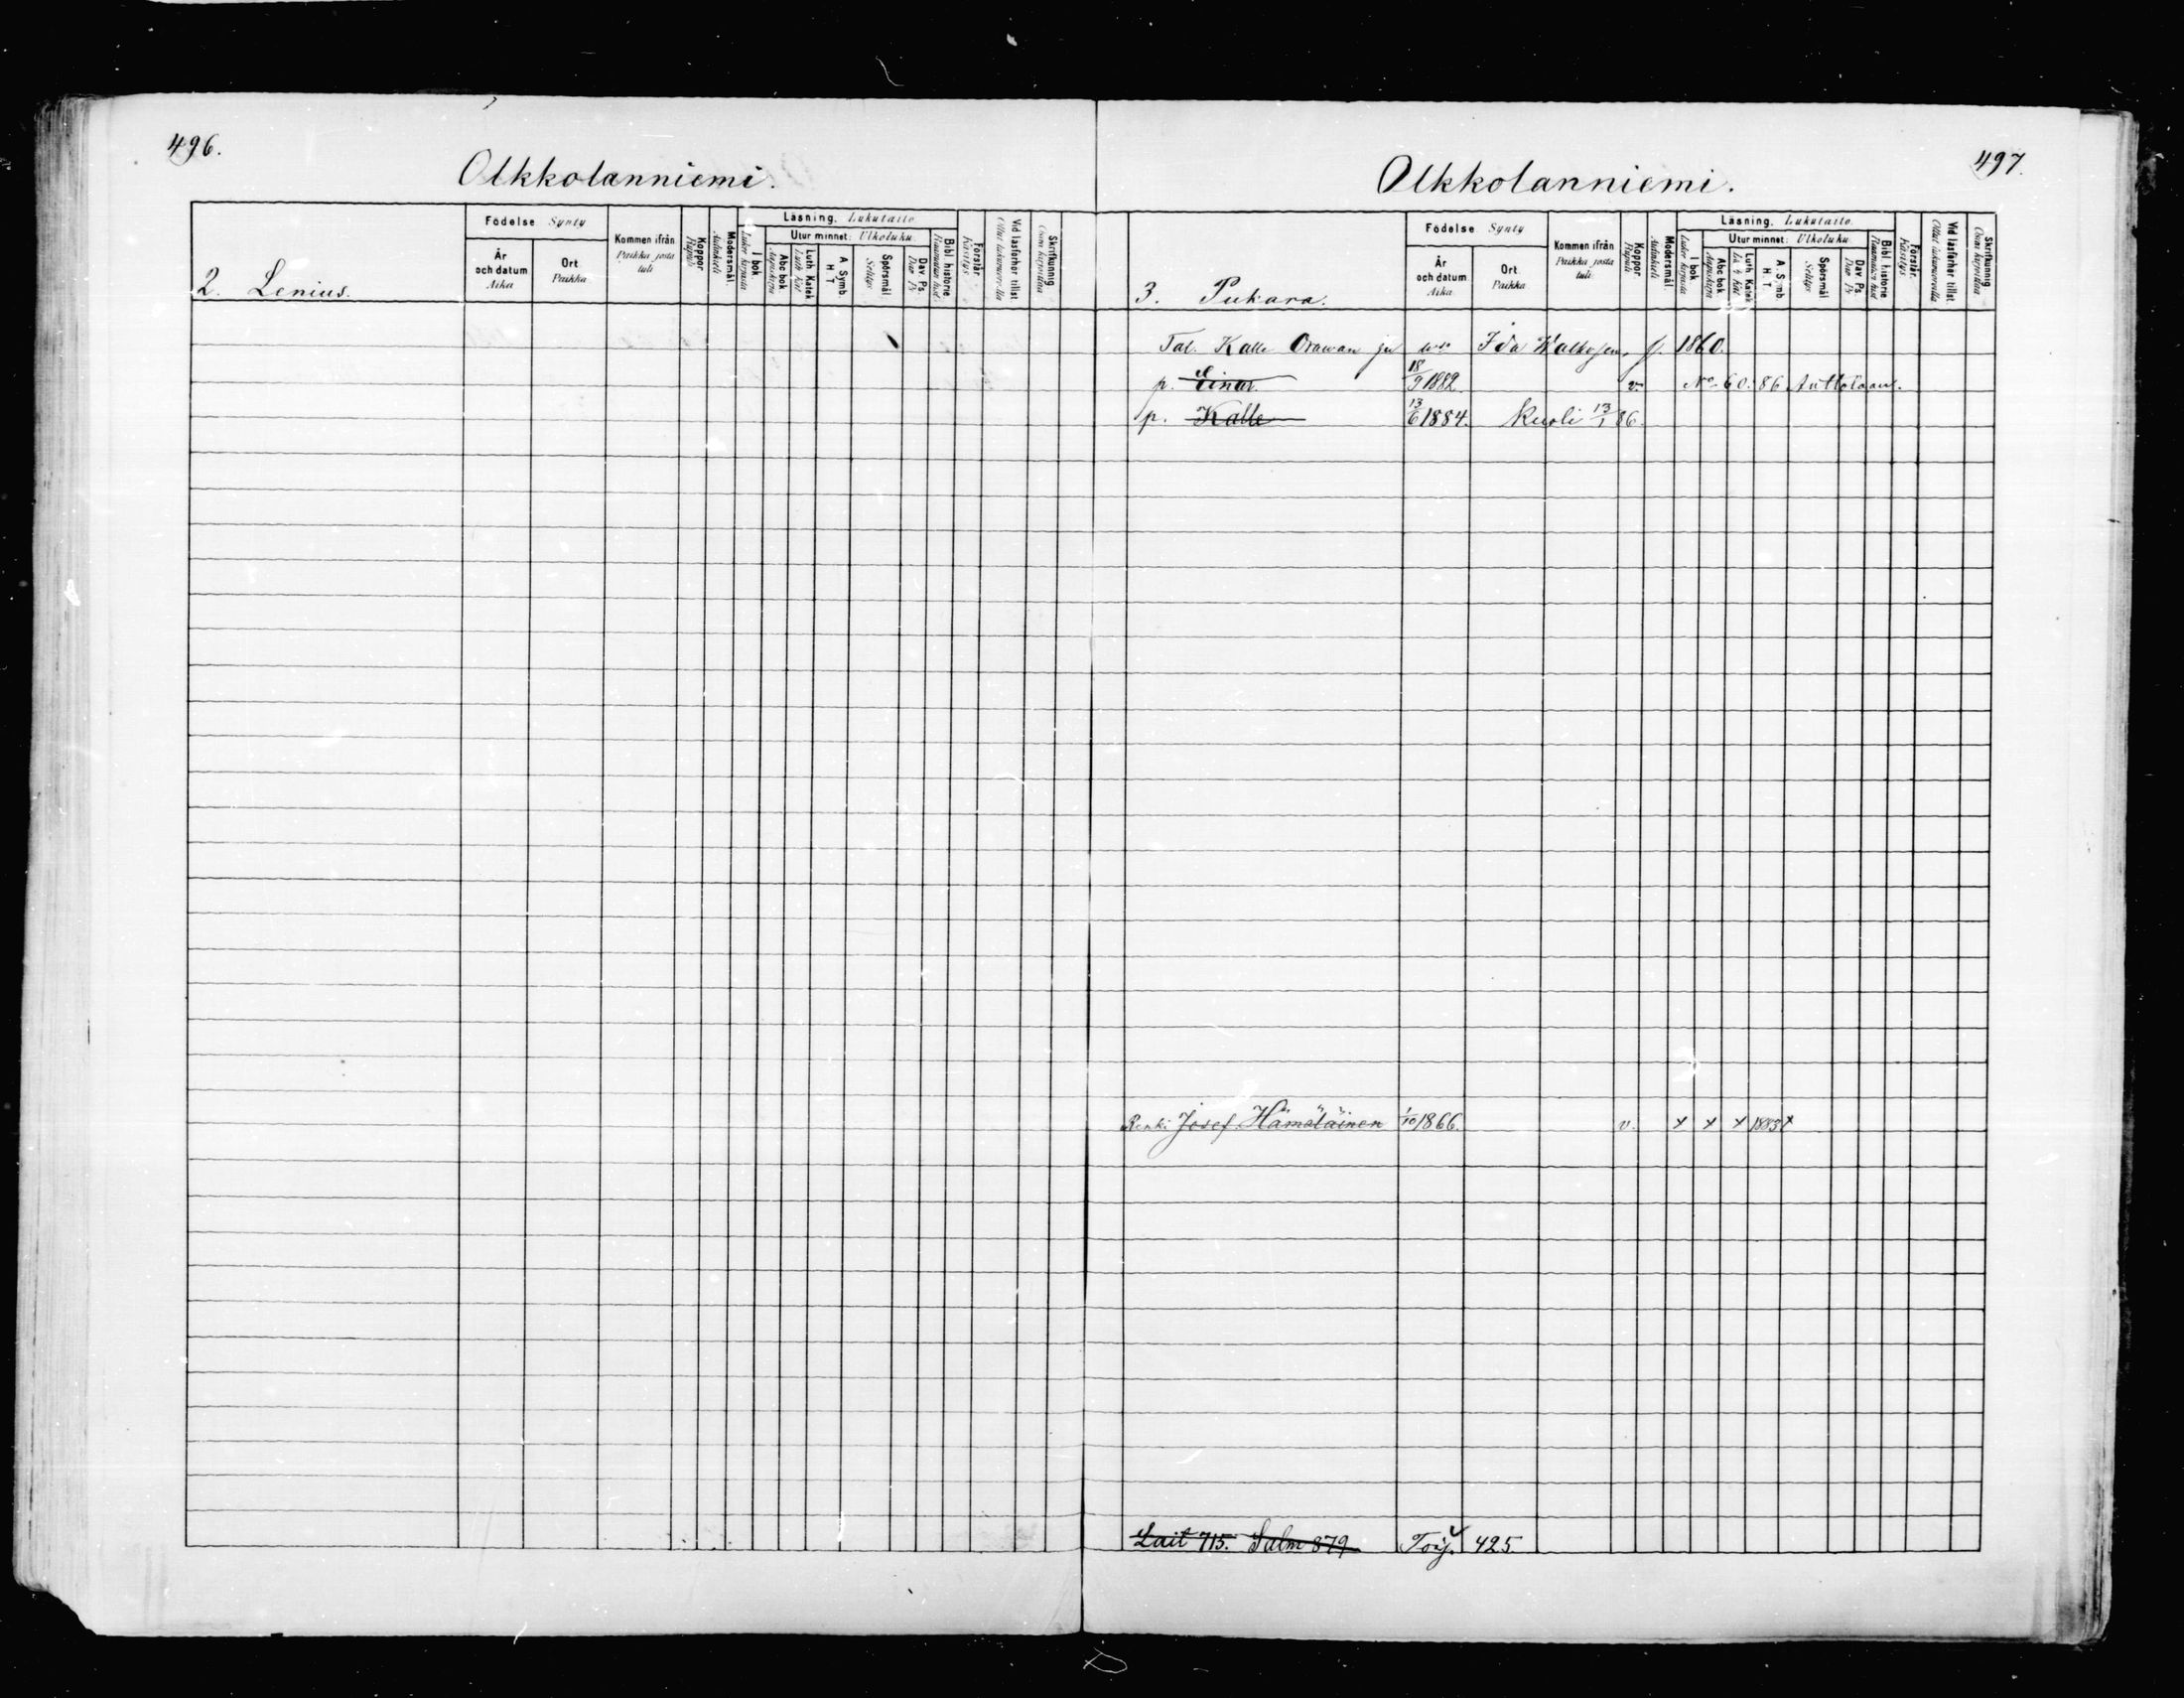 496.
Olkkolanniemi.
2. Lenius.
Födelse Synty
År och datum Aika
Ort Paikka
Kommen ifrån Paikka josta tuli
Koppor Rupuli
Modersmål. Äidinkieli
Läsning. Lukutaito
I bok Luku kirjasta
Utur minnet: Ulkoluku.
Abc bok Aapiskirja
Luth. Katek Luth. Kat
A Symb. H T
Spörsmål Selitys
Dav Ps Dav Ps
Bibl. historie Raamatun hist
Förstår Käsitys
Vid läsförhör tillst. Ollut lukuvuoroilla
Skrifkunning Osaa kirjoittaa
497.
Olkkolanniemi.
3. Pukara.
Födelse Synty
År och datum Aika
Ort. Paikka
Kommen ifrån Paikka josta tuli.
Koppor Rupuli
Modersmål. Äidinkieli
Läsning. Lukutaito.
I bok Luku kirjasta
Utur minnet: Ulkoluku.
Abc bok Aapiskirja
Luth Katek
A Symb. H T
Spörsmål Selitys
Dav Ps Dav Ps
Bibl. historie Raamatun hist
Förstår. Käsitys
Vid läsförhör tillst. Ollut lukuvuoroilla
Skrifkunning Osaa kirjoittaa
Tal. Kalle Orawan ja Ida s. 1860.
p. Einar 18/9 1882. v. No 60. 86 Anttolaan.
p. Kalle 13/6 1884. Kuoli 13/1 86.
Renki Josef Hämäläinen 1/10 1866. v. x x x 1885 x
Lait 715. Salm 879 Toij. 425.